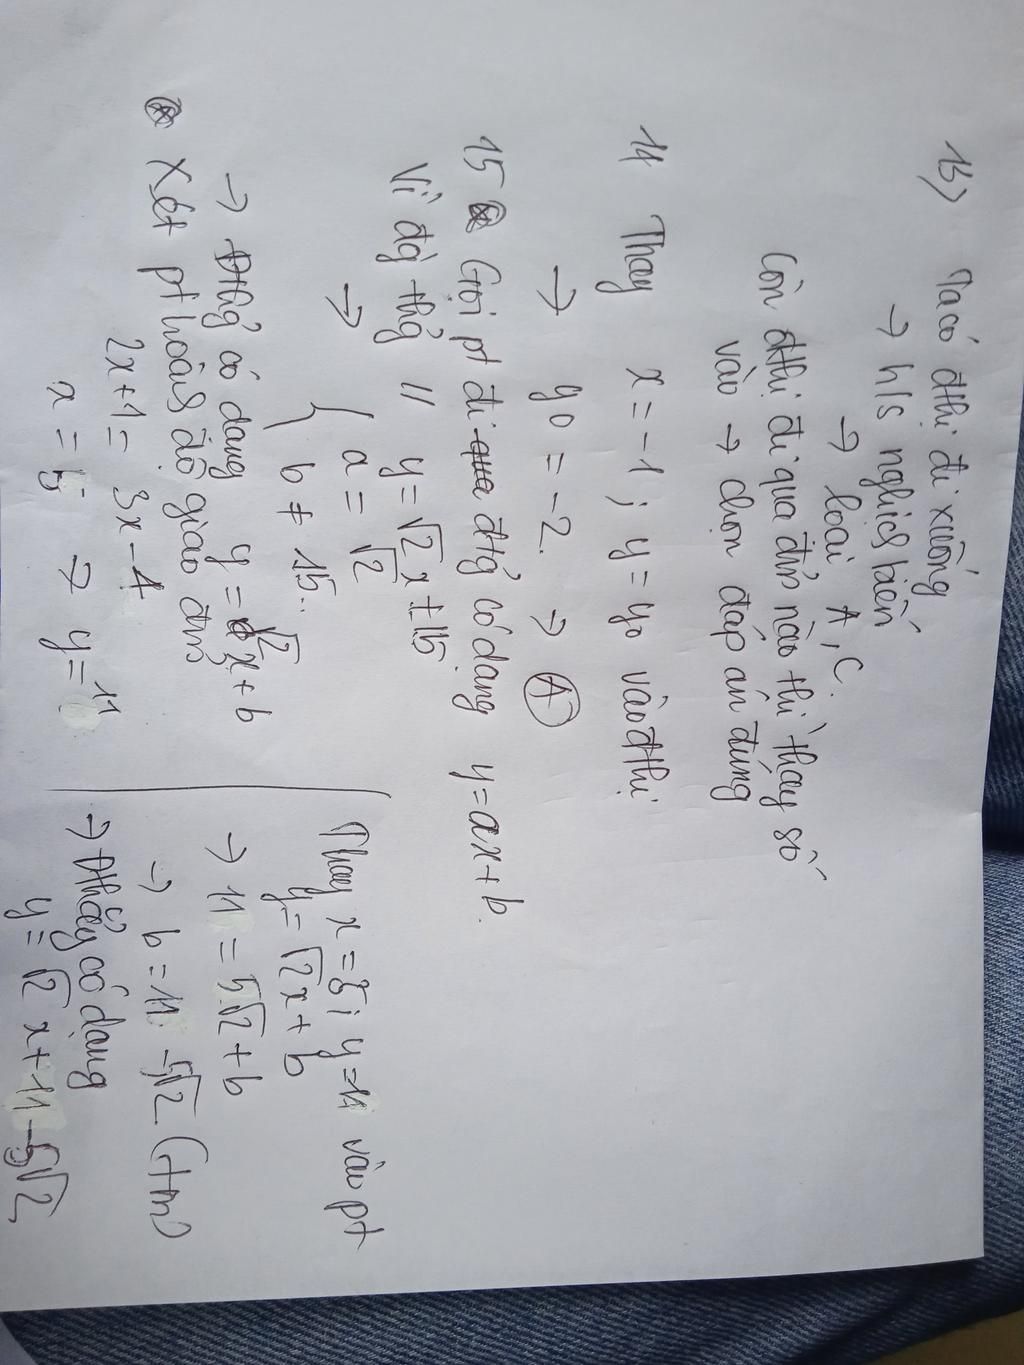 13) Ta có đthị đi xuống
→ h/s nghịch biến
→ loại A, C.
Còn đthị đi qua đ' nào thì thay số
vào → chọn đáp án đúng
14 Thay x = -1 ; y = y₀ vào đthị
→ y₀ = -2. → Ⓐ
15 ⊛ Gọi pt đi đtg̉ có dạng y = ax + b.
Vì đg̀ thg̉ // y = √2x + 15
→ { a = √2
b ≠ 15.
→ Đthg̉ có dạng y = √2x + b
⊛ Xét pt hoành độ giao đm̉
2x + 1 = 3x - 4
x = 5 → y = 11
Thay x = 5 ; y = 11 vào pt
y = √2x + b
→ 11 = 5√2 + b
→ b = 11 - 5√2 (tm)
→ Đthẳg có dạng
y = √2 x + 11 - 5√2.